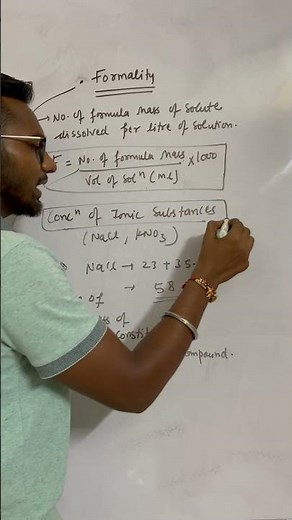 • Formality
→ No. of formula mass of solute
dissolved per litre of solution.
= No. of formula mass × 1000
Vol of Solⁿ (ml)
Concⁿ of Ionic Substances
(NaCl, KNO₃)
NaCl → 23 + 35.
→ 58
of
of
Consti
ompound.